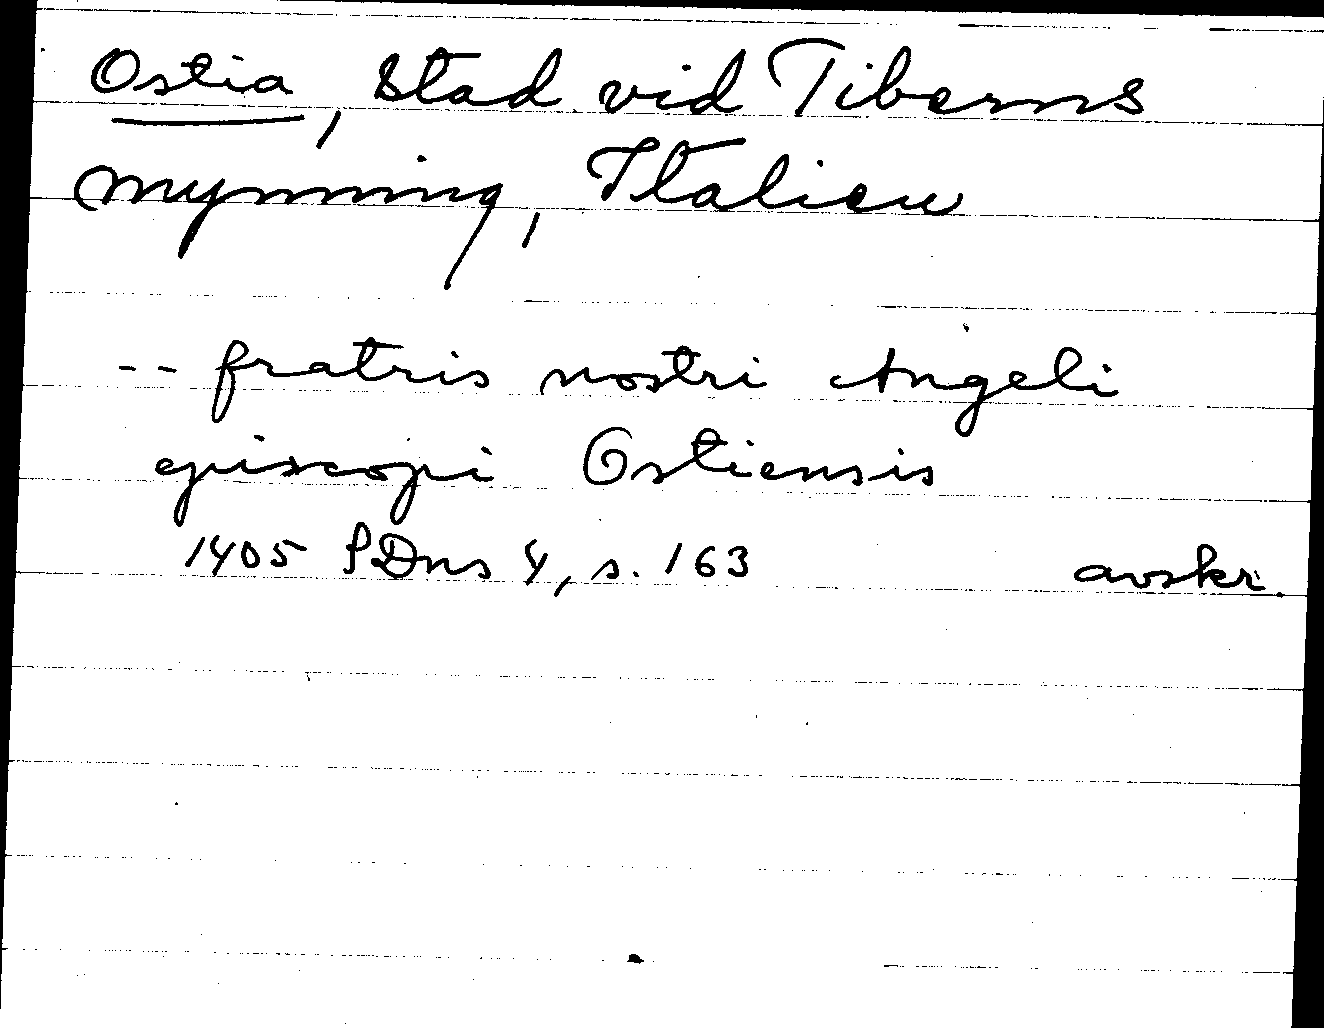 Ostia, stad vid Tiberns
mynning, Italien
-- fratris nostri Angeli
episcopi Ostiensis
1405 SDns 4, s. 163 avskr.